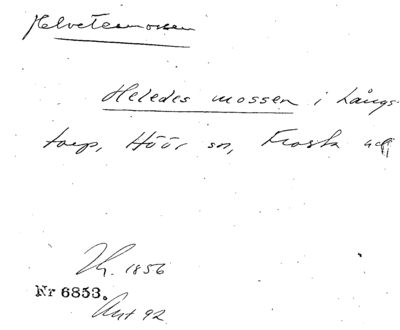 Helvetesmossen
Heledes mossen i Långs-
torp, Höör sn, Frosta
1856
Nr 6853.
Ant 92